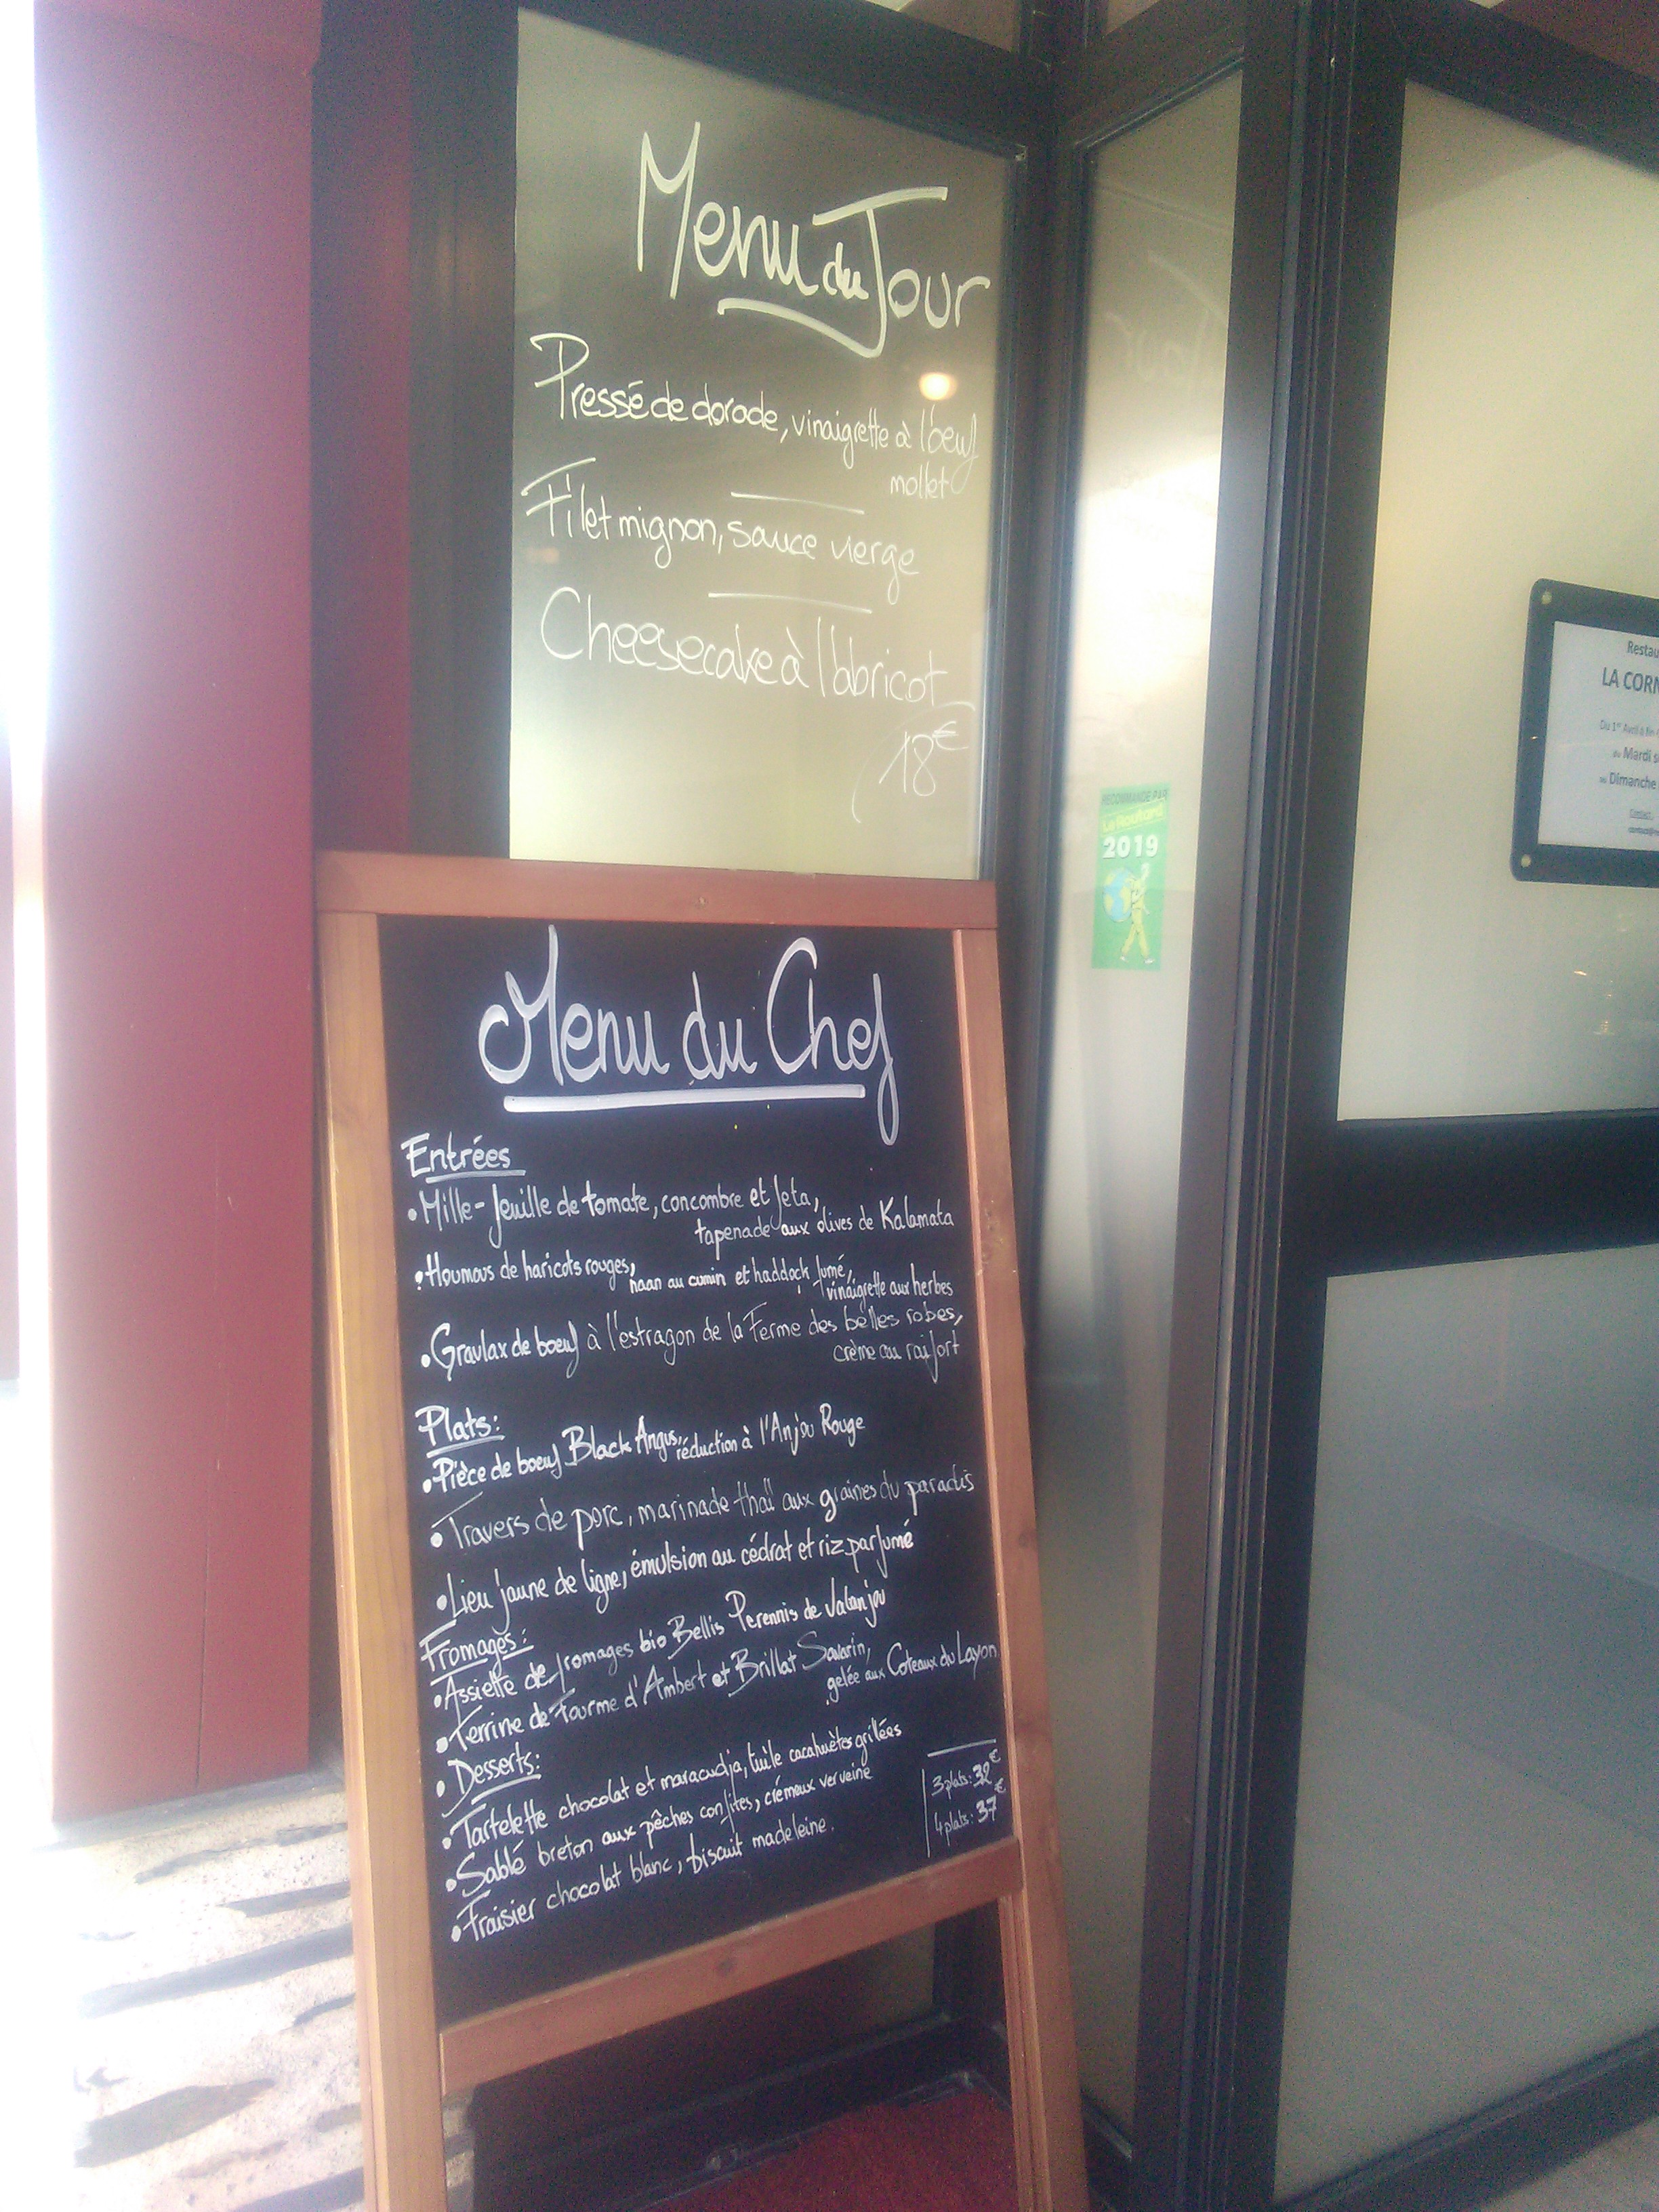 Menu du Jour
Pressé de dorade, vinaigrette à l'oeuf
mollet
Filet mignon, sauce vierge
Cheesecake à l'abricot
18€
Menu du Chef
Entrées
• Mille-feuille de tomate, concombre et feta,
tapenade aux olives de Kalamata
• Houmous de haricots rouges,
naan au cumin et haddock fumé,
vinaigrette aux herbes
• Gravlax de boeuf à l'estragon de la Ferme des belles robes,
crème au raifort
Plats:
• Pièce de boeuf Black Angus, réduction à l'Anjou Rouge
• Travers de porc, marinade thaï aux graines du paradis
• Lieu jaune de ligne, émulsion au cédrat et riz parfumé
Fromages:
• Assiette de fromages bio Bellis Perennis de Valanjou
• Terrine de Fourme d'Ambert et Brillat Savarin,
gelée aux Coteaux du Layon
• Desserts:
• Tartelette chocolat et maracudja, tuile cacahuètes grillées
• Sablé breton aux pêches confites, crémeux verveine
• Fraisier chocolat blanc, biscuit madeleine.
3 plats: 32€
4 plats: 37€
RECOMMANDÉ PAR
Le Routard
2019
Restau
LA CORN
Du 1er Avril à fin
du Mardi s
au Dimanche
Contact